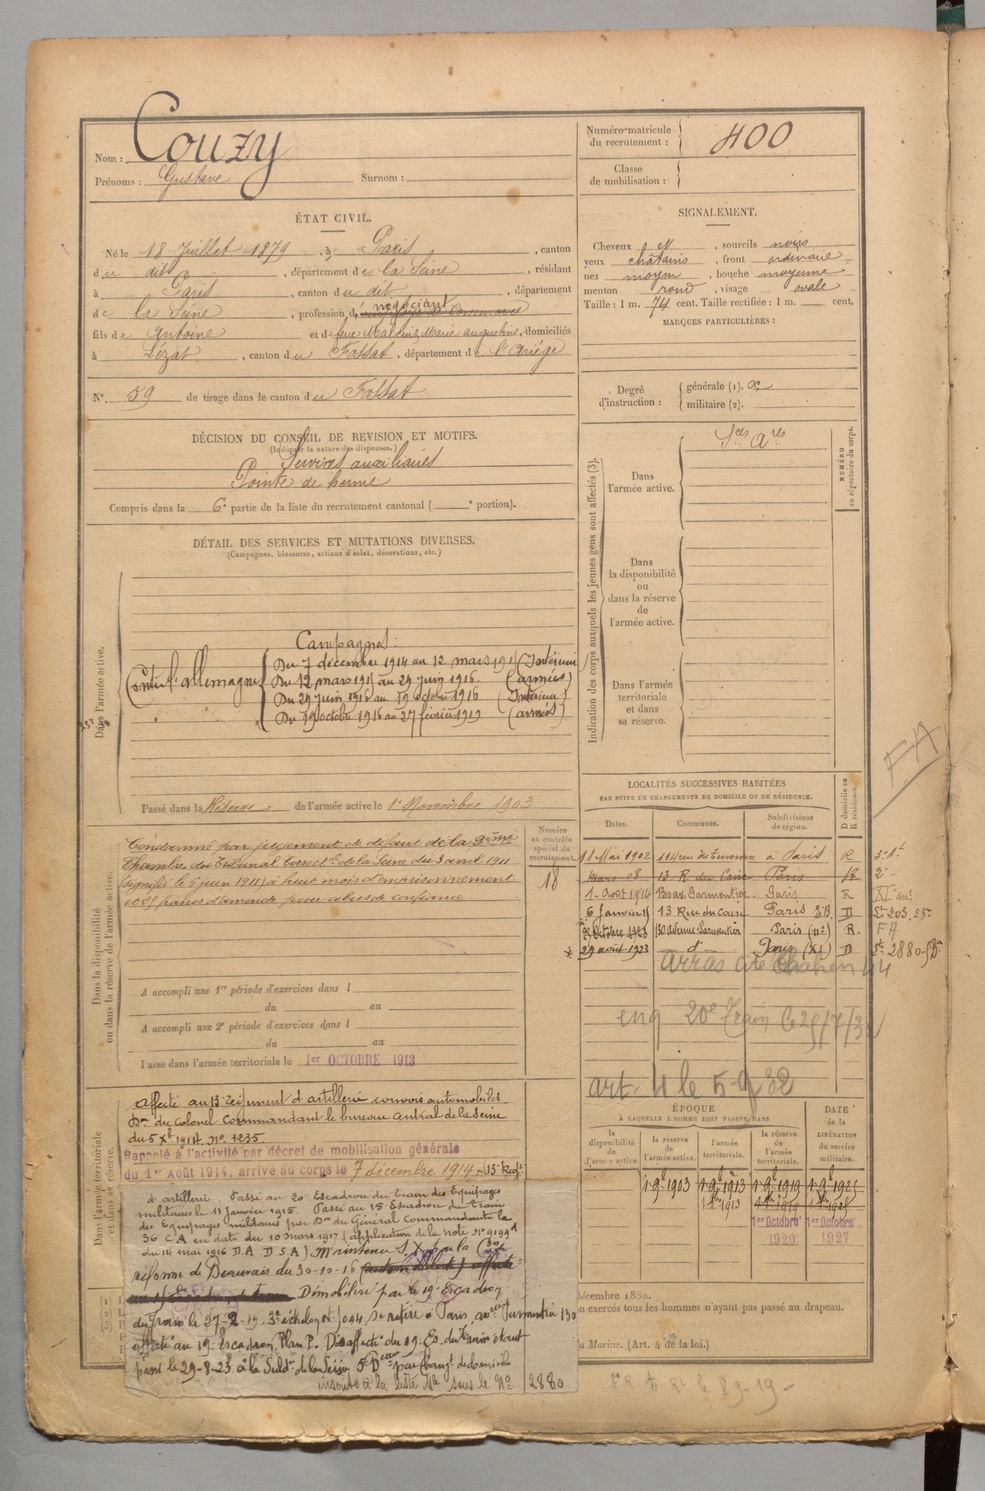 Nom : Couzy
Prénoms : Gustave Surnom :
Numéro matricule du recrutement : 400
Classe de mobilisation :
ÉTAT CIVIL.
Né le 18 Juillet 1879, à Paris, canton
du dit, département de la Seine, résidant
à Paris, canton du dit, département
de la Seine, profession de négociant
fils de Antoine et de feue Marie Augustine, domiciliés
à Lézat, canton du Fossat, département de l'Ariége
N° 59 de tirage dans le canton du Fossat
DÉCISION DU CONSEIL DE REVISION ET MOTIFS.
(Indiquer la nature des dispenses.)
Services auxiliaires
Pointe de hernie
Compris dans la 6e partie de la liste du recrutement cantonal ( e portion).
DÉTAIL DES SERVICES ET MUTATIONS DIVERSES.
(Campagnes, blessures, actions d'éclat, décorations, etc.)
Dans l'armée active.
Campagnes :
Contre l'allemagne
Du 7 décembre 1914 au 12 mars 191 (Intérieur)
Du 12 mars 191 au 29 juin 1916. (armées)
Du 29 juin 1916 au 19 octobre 1916 (Intérieur)
Du 19 octobre 1916 au 27 février 1919 (armées)
Passé dans la Réserve de l'armée active le 1er Novembre 1903
Dans la disponibilité ou dans la réserve de l'armée active.
Numéro au contrôle spécial du recrutement.
18
Condamné par jugement de défaut de la 9ème
Chambre du Tribunal Correctel de la Seine du 3 avril 1911
(signifié le 6 juin 1911) à huit mois d'emprisonnement
et 51 francs d'amende pour abus de confiance
A accompli une 1re période d'exercices dans l
du au
A accompli une 2e période d'exercices dans l
du au
Passé dans l'armée territoriale le 1er OCTOBRE 1913
Dans l'armée territoriale et dans sa réserve.
Affecté au 13e régiment d'artillerie convois automobiles
Don du colonel Commandant le bureau central de la Seine
du 5 Xbre 1914 No 1235
Rappelé à l'activité par décret de mobilisation générale
du 1er Août 1914, arrivé au corps le 7 décembre 1914
d'artillerie. Passé au 20e Escadron du train des Equipages
militaires le 11 janvier 1915. Passé au 15e Escadron du train
des Equipages militaires par Don du Général Commandant le
36 C A en date du 10 mars 1917 (application de la note No 9199 D
du 14 mai 1916 D A D S A) Maintenu S X par la Con de
réforme de Beauvais du 30-10-16
Démobilisé par le 19e Escadron
du train le 27-2-19. 3e échelon No 1094, se retire à Paris, avenue Parmentier 130
affecté au 19e Escadron. Plan P. Désaffecté du 19 Es. du train et est
passé le 29-8-23 à la Subdon de la Seine 5e Beau par changt de domicile
inscrit à la liste sous le No 2880
SIGNALEMENT.
Cheveux N, sourcils noirs
yeux châtains, front ordinaire
nez moyen, bouche moyenne
menton rond, visage ovale
Taille : 1 m. 74 cent. Taille rectifiée : 1 m. cent.
MARQUES PARTICULIÈRES :
Degré d'instruction : générale (1). militaire (2).
Indication des corps auxquels les jeunes gens sont affectés (3).
NUMÉRO au répertoire du corps.
Sces Ares
Dans l'armée active.
Dans la disponibilité ou dans la réserve de l'armée active.
Dans l'armée territoriale et dans sa réserve.
FA
LOCALITÉS SUCCESSIVES HABITÉES
PAR SUITE DE CHANGEMENTS DE DOMICILE OU DE RÉSIDENCE.
Dates. Communes. Subdivisions de région. D domicile ou R résidence.
11 Mai 1902 114 rue de Turenne à Paris R
Mars 08 13 R. du Caire Paris R 2e
1er Août 1914 130 av. Parmentier Paris R
6 Janvier 13 Rue du Caire Paris D
Octobre 1923 130 avenue Parmentier Paris R. FA
29 août 1923 do Paris (XI) D 2880
Arras
20e Train
art. 4 le 5-9-32
ÉPOQUE
À LAQUELLE L'HOMME DOIT PASSER DANS
la disponibilité de l'armée active. la réserve de l'armée active. l'armée territoriale. la réserve de l'armée territoriale.
DATE de la LIBÉRATION du service militaire.
1.9bre 1903 1.9bre 1913 1.9bre 1919 1.9bre 1925
1er Octobre 1920 1er Octobre 1927
décembre 1889.
on exercés tous les hommes n'ayant pas passé au drapeau.
la Marine. (Art. 4 de la loi.)